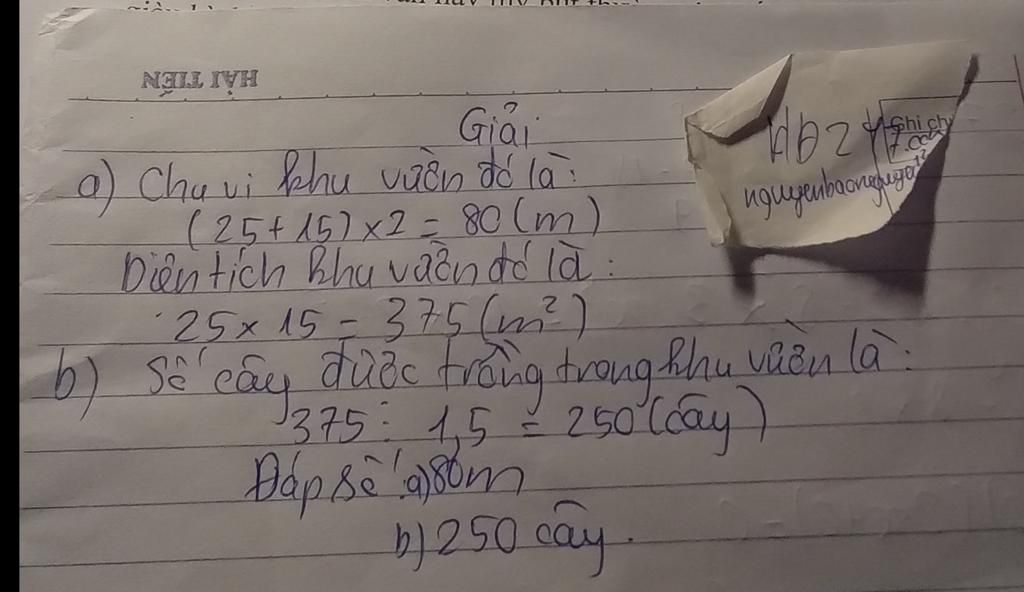 HẢI TIẾN
Giải
a) Chu vi khu vườn đó là:
(25 + 15) × 2 = 80 (m)
Diện tích khu vườn đó là:
25 × 15 = 375 (m²)
b) Số cây được trồng trong khu vườn là:
375 : 1,5 = 250 (cây)
Đáp số: a) 80m
b) 250 cây.
Ghi ch